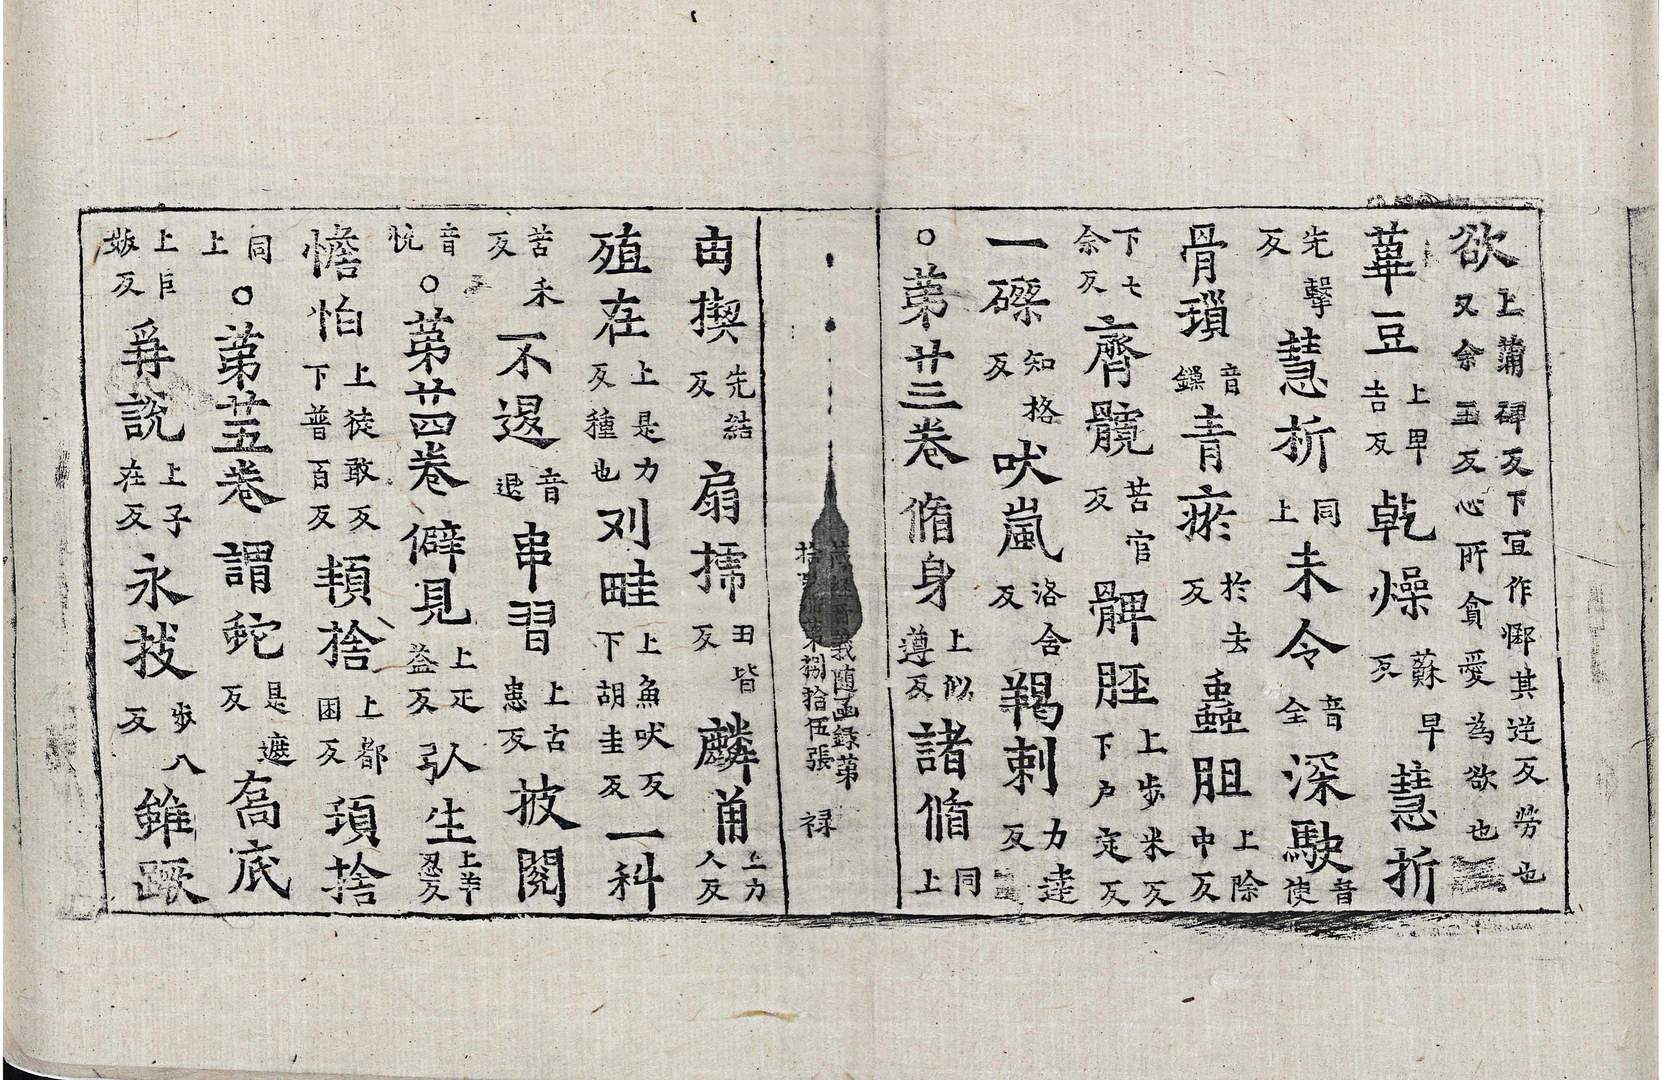 欲上蒲碑反下宜作𢠵其逆反勞也又余玉反心所貪愛為欲也
蓽豆上早吉反乾燥蘇早反慧折
先擊反慧折同上未令音全深駛音使
骨瑣音鏁青瘀於去反蟲胆上除中反
下七余反齊髖苦官反髀脛上步米反下户定反
一磔知格反吠嵐洛含反羯剌力達反
○第廿三卷脩身上似遵反諸脩同上
藏經音義随函録第 捌拾伍張 禄
由揳先結反扇搋田皆反麟角上力人反
殖在上是力反種也刈畦上魚吠反下胡圭反一科
苦禾反不退音退串習上古患反披閱
音悦○第廿四卷僻見上疋益反引生上羊忍反
憺怕上徒敢反下普百反頓捨上都困反頊捨
同上○第廿五卷謂蛇是遮反窩底
上巨𡛸反爭說上子在反永拔步八反雖蹶